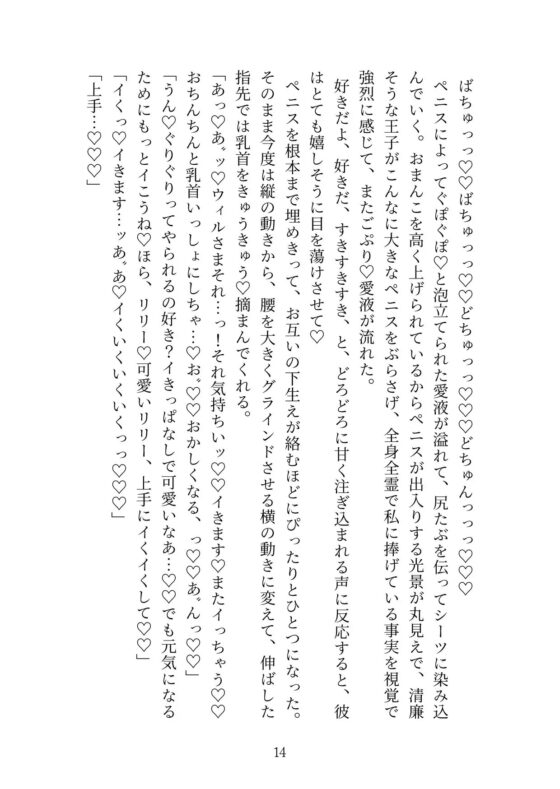 ばちゅっっ♡♡ばちゅっっ♡♡どちゅっっ♡♡♡どちゅんっっっ♡♡♡
ペニスによってぐぽぐぽ♡と泡立てられた愛液が溢れて、尻たぶを伝ってシーツに染み込
んでいく。おまんこを高く上げられているからペニスが出入りする光景が丸見えで、清廉
そうな王子がこんなに大きなペニスをぶらさげ、全身全霊で私に捧げている事実を視覚で
強烈に感じて、またごぷり♡愛液が流れた。
好きだよ、好きだ、すきすきすき、と、どろどろに甘く注ぎ込まれる声に反応すると、彼
はとても嬉しそうに目を蕩けさせて♡
ペニスを根本まで埋めきって、お互いの下生えが絡むほどにぴったりとひとつになった。
そのまま今度は縦の動きから、腰を大きくグラインドさせる横の動きに変えて、伸ばした
指先では乳首をきゅうきゅう♡摘まんでくれる。
「あっ♡あ゛ッ♡ウィルさまそれ…っ！それ気持ちいッ♡♡イきます♡またイっちゃう♡♡
おちんちんと乳首いっしょにしちゃ…♡お゛♡♡おかしくなる、っ♡♡あ゛んっ♡♡」
「うん♡ぐりぐりってやられるの好き？イきっぱなしで可愛いなあ…♡♡でも元気になる
ためにもっとイこうね♡ほら、リリー♡可愛いリリー、上手にイくイくして♡♡」
「イくっ♡イきます…ッあ゛あ♡イくいくいくいくっっ♡♡♡」
「上手…♡♡♡」
14